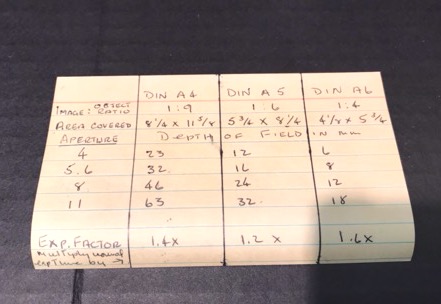 DIN A4 DIN A5 DIN A6
IMAGE: OBJECT RATIO 1:9 1:6 1:4
AREA COVERED 8 1/4 x 11 5/8 5 3/4 x 8 1/4 4 1/8 x 5 3/4
APERTURE DEPTH OF FIELD IN mm
4 23 12 6
5.6 32 16 8
8 46 24 12
11 63 32 18
EXP. FACTOR 1.4x 1.2 x 1.6x
Multiply normal
exp Time by →